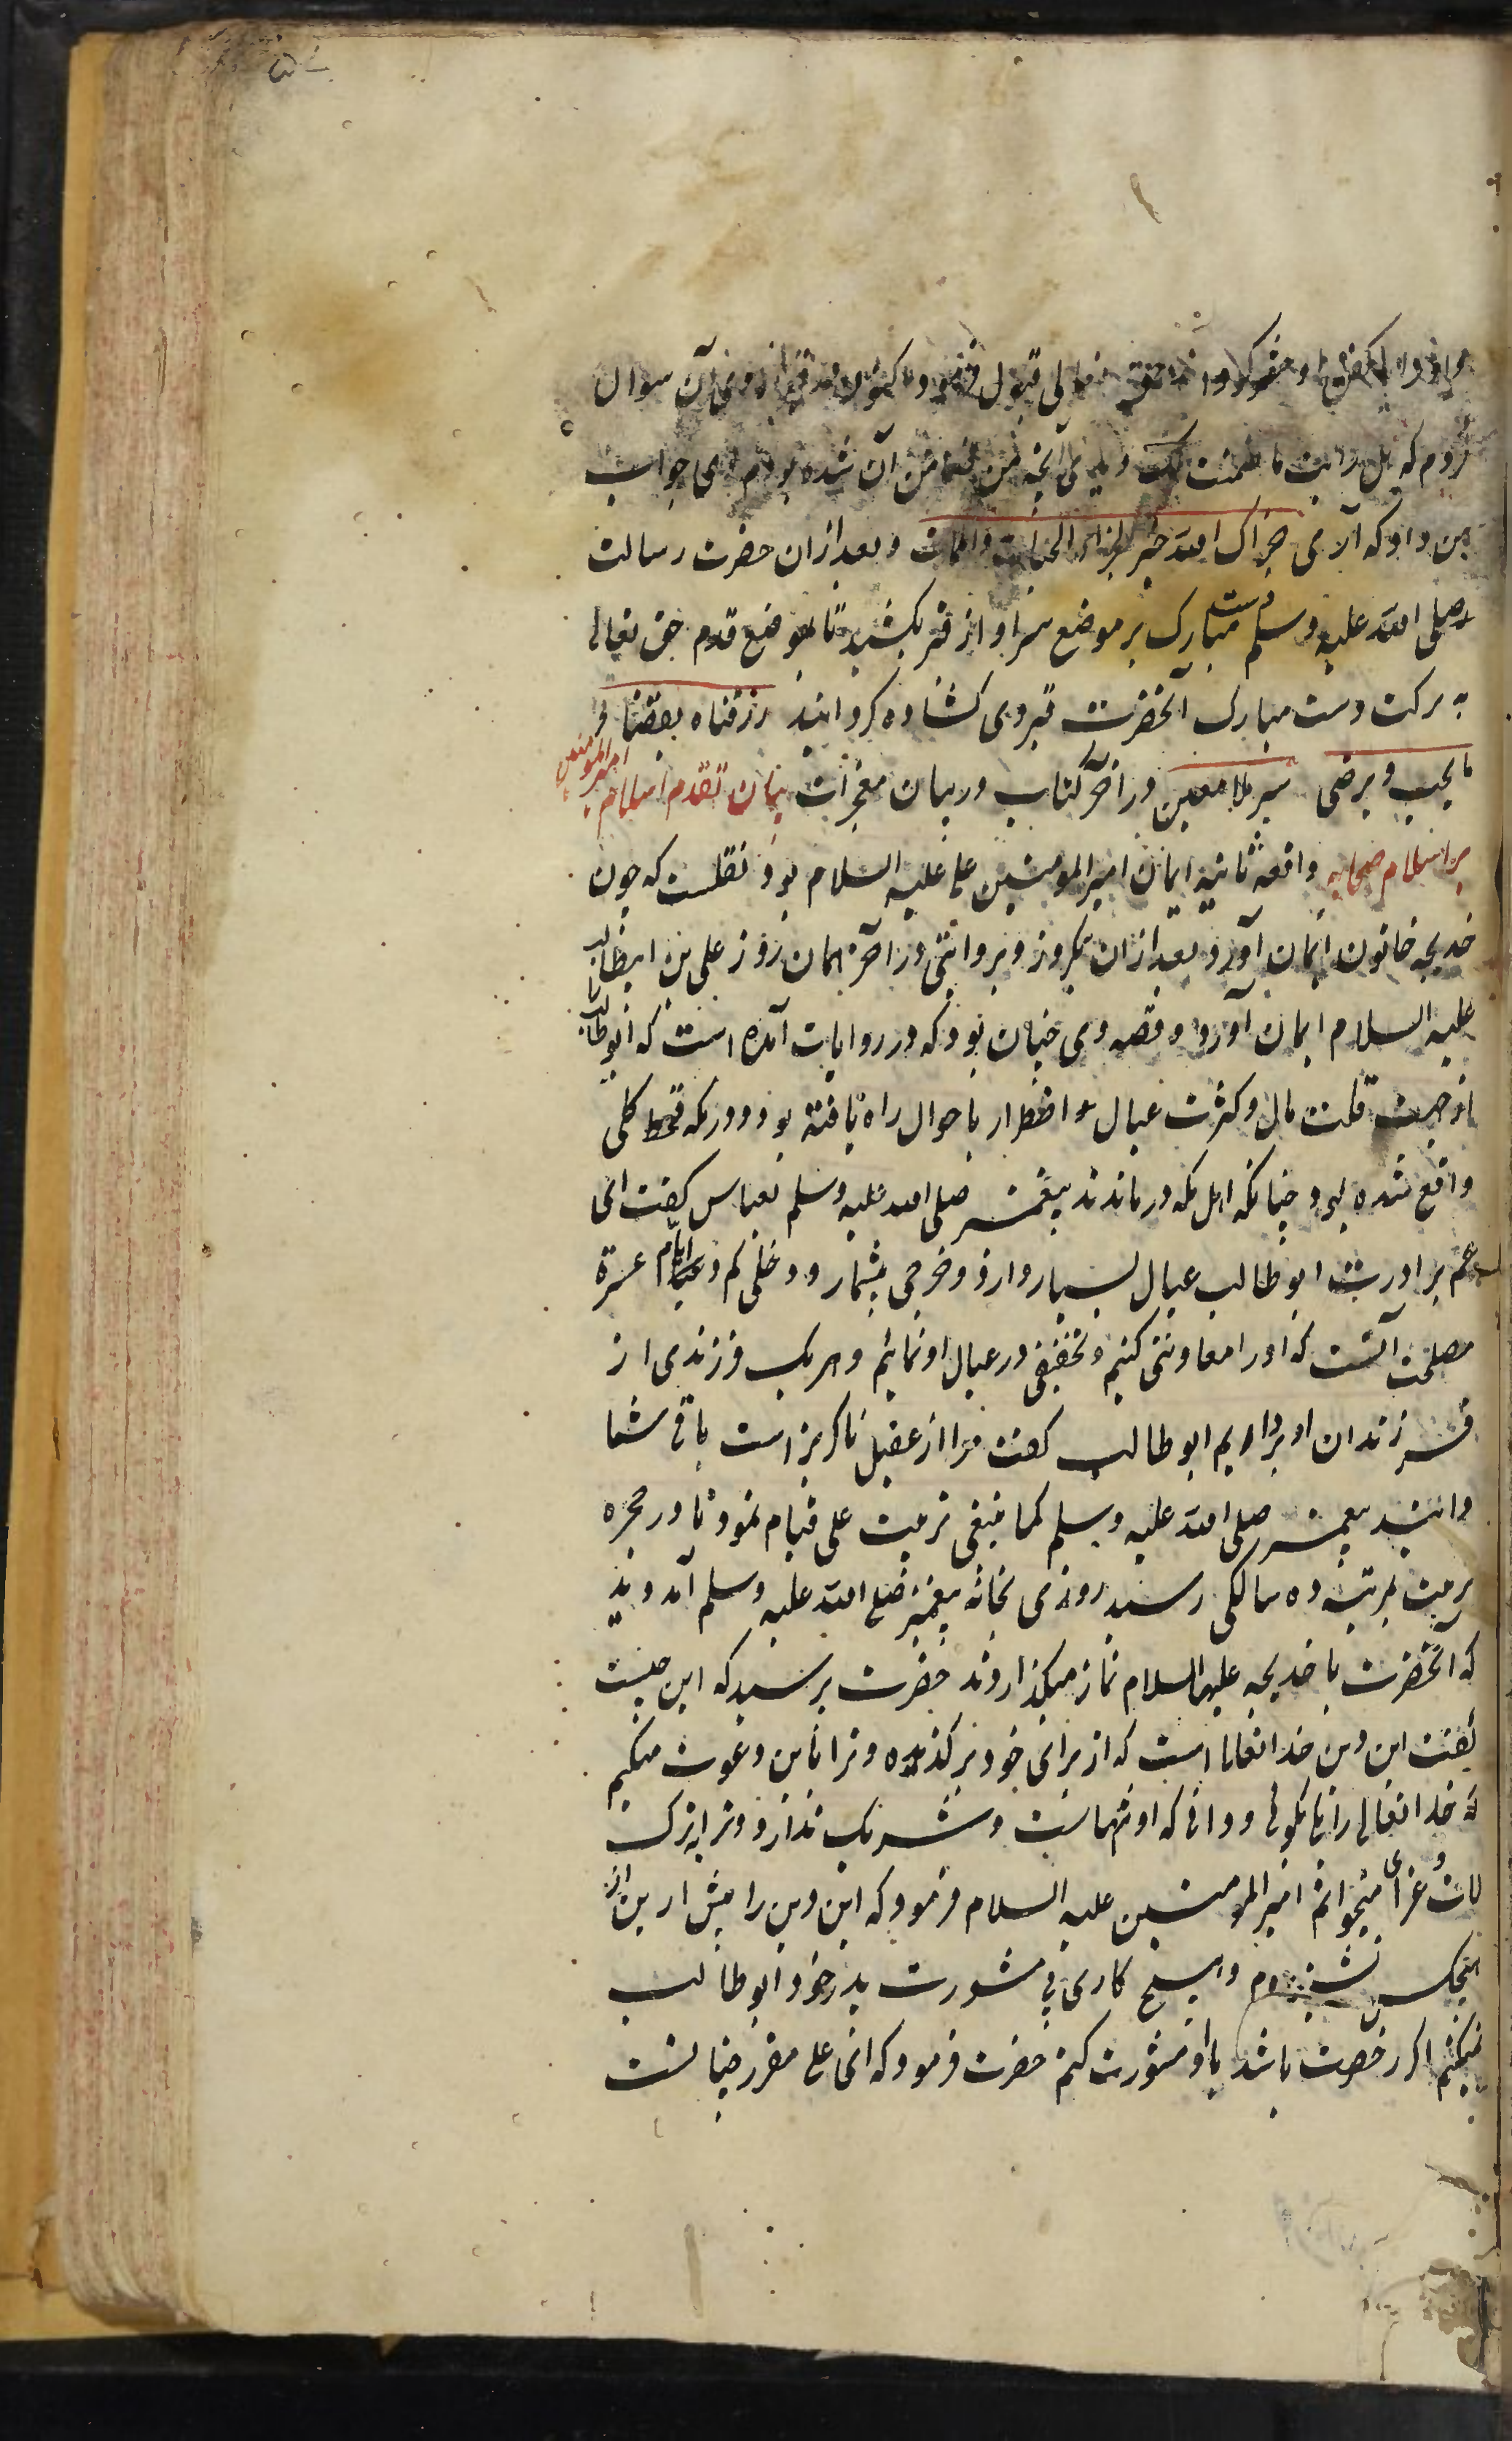 قبول فرمود اکنون از وی آن سوال
کردم که هل رایت ما ضمنت لک و آنچه من ضامن آن شده بودم وی جواب
من داد که آری جزاک الله خیر الجزاء فی الحیات والممات و بعد از ان حضرت رسالت
صلی الله علیه وسلم دست مبارک بر موضع سر او از قبر بکشید تا بموضع قدم حق تعالی
به برکت دست مبارک آنحضرت قبر وی کشاده کردانید رزقناه بفضله
ما یحب و یرضی سیر ملا معین در اخر کتاب در بیان معجزات بیان تقدم اسلام امیر المومنین
بر اسلام صحابه واقعه ثانیه ایمان امیر المومنین علی علیه السلام بود نقلست که چون
خدیجه خاتون ایمان آورد بعد از ان بکروز و بروایتی در آخر همان روز علی بن ابیطالب
علیه السلام ایمان آورد و قصه وی چنان بود که در روایات آمده است که ابوطالب را
از جهت قلت مال و کثرت عیال اضطرار باحوال راه یافته بود و در مکه قحط کلی
واقع شده بود چنانکه اهل مکه درماندند پیغمبر صلی الله علیه وسلم بعباس کفت ای
عم برادرت ابوطالب عیال بسیار دارد و خرجی بیشمار و دخلی کم و ایام عسرة
مصلحت آنست که او را معاونتی کنیم و تخفیفی در عیال او نمائیم و هر یک فرزندی از
فرزندان او برداریم ابوطالب کفت مرا از عقیل ناکریز است باقی شما
دانید پیغمبر صلی الله علیه وسلم کما ینبغی تربیت علی قیام نمود تا در حجره
تربیت بمرتبه ده سالکی رسید روزی بخانه پیغمبر صلی الله علیه وسلم آمد و دید
که آنحضرت با خدیجه علیها السلام نماز میکذاردند حضرت پرسید که این چیست
کفت این دین خدا تعالی است که از برای خود برکزیده و ترا باین دعوت میکنم
که خدا تعالی را یکی کوئی و دانی که او تنهاست و شریک ندارد و ترا بترک
لات و عزی میخوانم امیر المومنین علیه السلام فرمود که این دین را پیش از این از
هیچکس نشنیدم و هیچ کاری بی مشورت پدر خود ابوطالب
نمیکنم اکر رخصت باشد با او مشورت کنم حضرت فرمود که ای علی مقرر چنانست